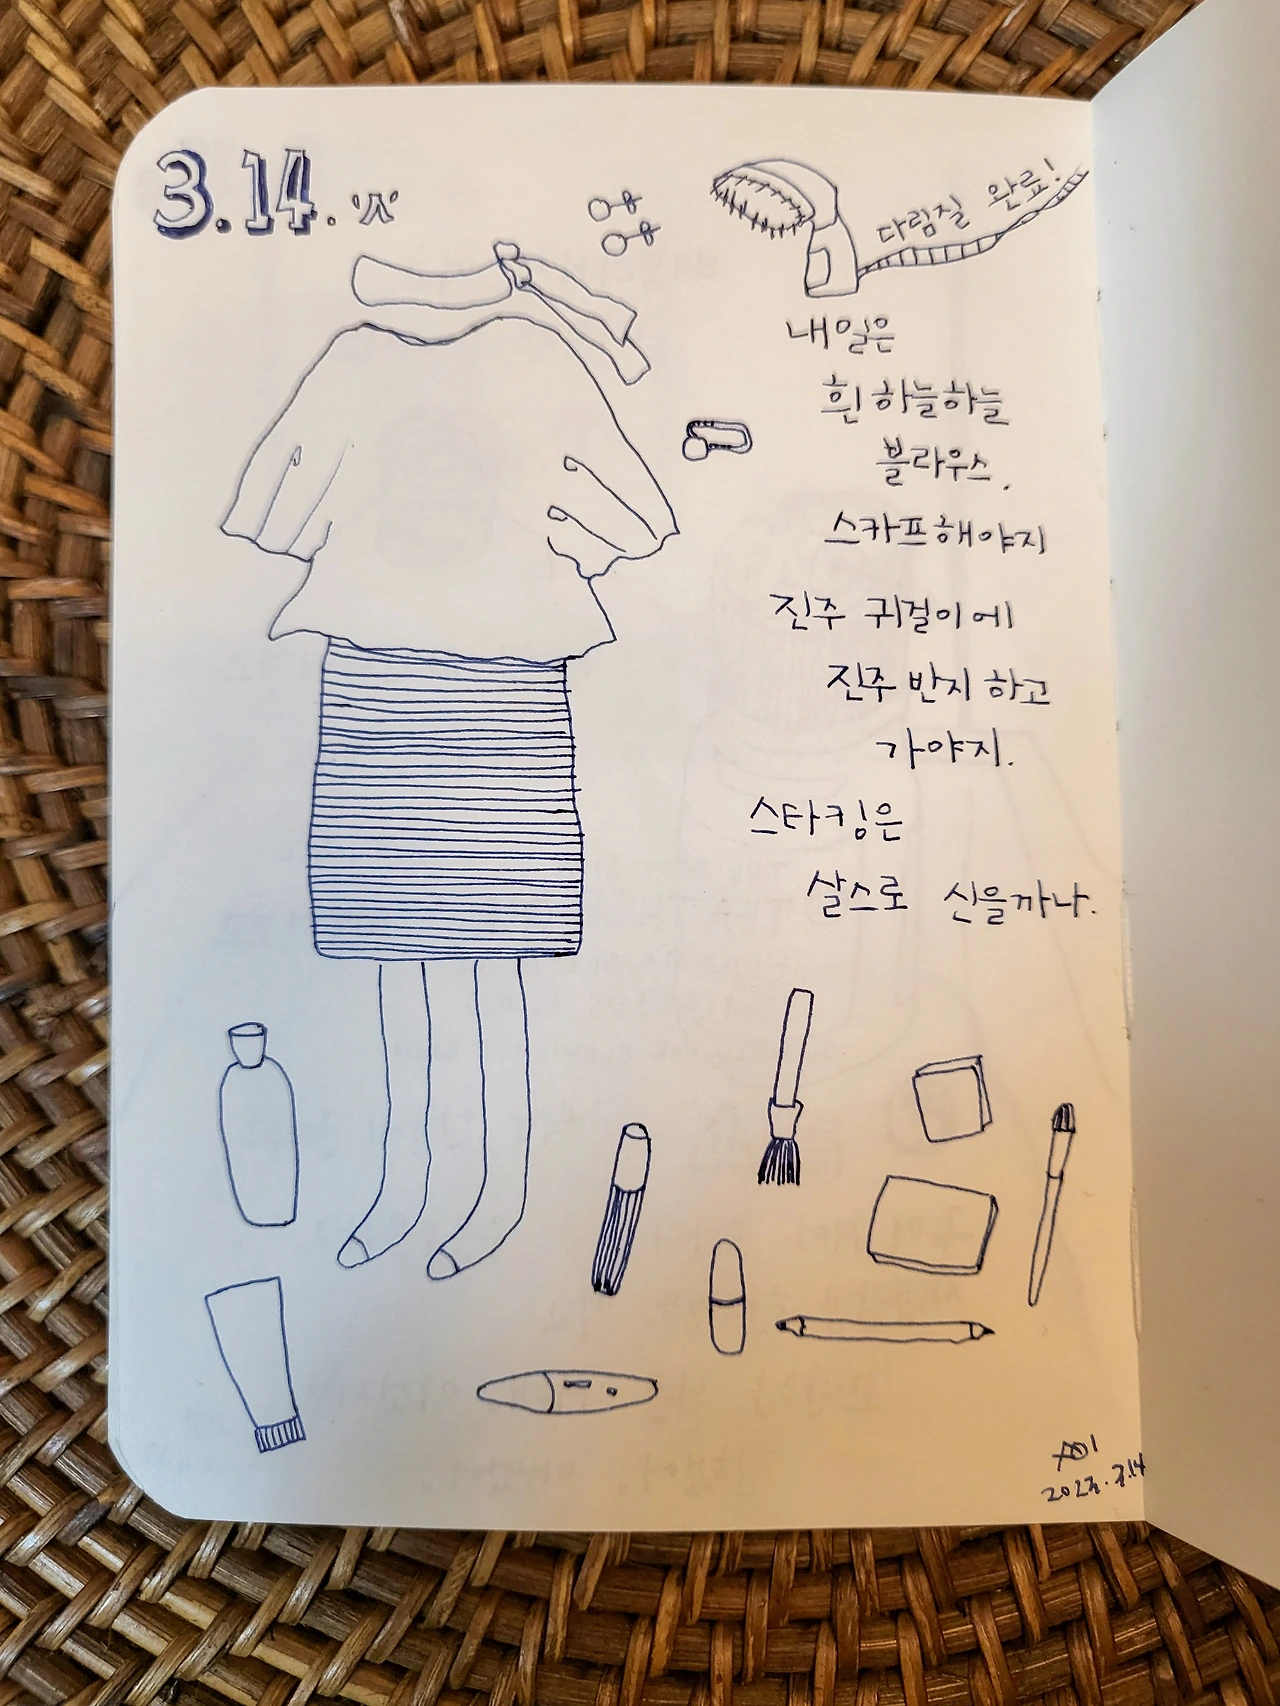 3.14.
다림질 완료!
내일은
흰 하늘하늘
블라우스.
스카프해야지
진주 귀걸이에
진주 반지 하고
가야지.
스타킹은
살스로 신을까나.